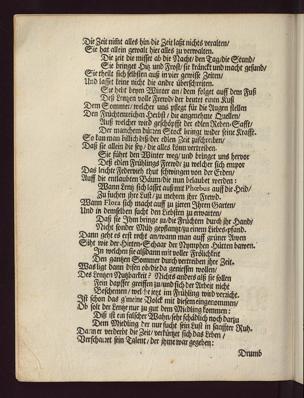 Die Zeit nihmt alles hin die Zeit laßt nichts veralten/
Sie hat allein gewalt hier alles zu verwalten.
Die zeit die misset ab die Nacht/ den Tag/die Stund/
Sie bringet Hitz und Frost/ sie kränckt und macht gesund/
Sie theilt sich selbsten auß in vier gewisse Zeiten/
Und lasset keine nicht die andre überschreiten.
Sie hebt beym Winter an/ dem folget auff dem Fuß
Deß Lentzen volle Freud/ der beutet einen Kuß
Dem Sommer/ welcher uns pflegt für die Augen stellen
Den Früchtenreichen Herbst/ die angenehme Quellen
Auß welcher wird geschöpfft der edlen Reben-Safft/
Der manchem dürren Stock bringt wider seine Krafft.
So kan man billich diß der edlen Zeit zuschreiben/
Daß sie allein die sey/ die alles könn vertreiben.
Sie führt den Winter weg/ und bringet uns hervor
Deß edlen Frühlings Freud/ zu welcher sich empor
Das leichte Federvieh thut schwingen von der Erden/
Auff die entlaubten Bäum die nun belaubet werden:
Wann Lentz sich lasst auß mit Phœbus auff die Heid/
Zu suchen ihre Lust/ zu mehren ihre Frewd.
Wann Flora sich macht auff zu zieren ihren Garten/
Und in demselben sucht den Liebsten zu erwarten/
Daß sie Ihm bringe an die Früchten durch ihr Hand/
Nicht sonder Müh gepflantzt/ zu einem Liebes-pfand.
Dann geht es erst recht an/ wann man auff grüner Awen
Siht wie der Hinten-Schaar der Nymphen-Hüten bawen.
In welchen sie alsdann mit voller Frölichkeit
Den gantzen Sommer durch vertreiben ihre Zeit.
Was ligt dann disen ob/die da geniessen wollen/
Des Lentzen Nutzbarkeit? Nichts anders alß sie sollen
Fein dapffer greiffen zu/und sich der Arbeit nicht
Beschemen/ weil beitzt im Frühling wird verzicht.
Ist schon das gmeine Volck mit disem eingenommen/
Ob solt der Lentze nur zu gut dem Miedling kommen:
Diß ist ein falscher Wahn/ sehr schädlich noch darzu
Dem Miedling der nur sucht sein Lust in sanffter Ruh.
Darmit verderbt die Zeit/ verkürtzet sich das Leben/
Verscharret sein Talent/ der ihme war gegeben:
Drumb